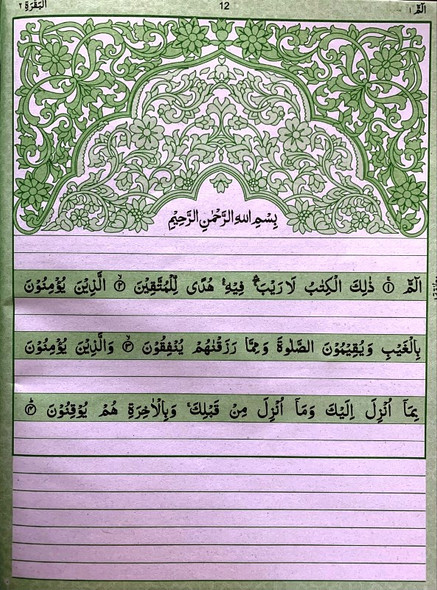 الٓمّٓ ۱ 12 اَلْبَقَرَة ۲
بِسْمِ اللهِ الرَّحْمٰنِ الرَّحِيْمِ
الٓمّٓ ۚ‏﴿۱﴾ ذٰلِكَ الْكِتٰبُ لَا رَيْبَ ۛۖ فِيْهِ ۛۚ هُدًى لِّلْمُتَّقِيْنَ ۙ‏﴿۲﴾ الَّذِيْنَ يُؤْمِنُوْنَ
بِالْغَيْبِ وَيُقِيْمُوْنَ الصَّلٰوةَ وَمِمَّا رَزَقْنٰهُمْ يُنْفِقُوْنَ ۙ‏﴿۳﴾ وَالَّذِيْنَ يُؤْمِنُوْنَ
بِمَآ اُنْزِلَ اِلَيْكَ وَمَآ اُنْزِلَ مِنْ قَبْلِكَ ۚ وَبِالْاٰخِرَةِ هُمْ يُوْقِنُوْنَ ؕ‏﴿۴﴾